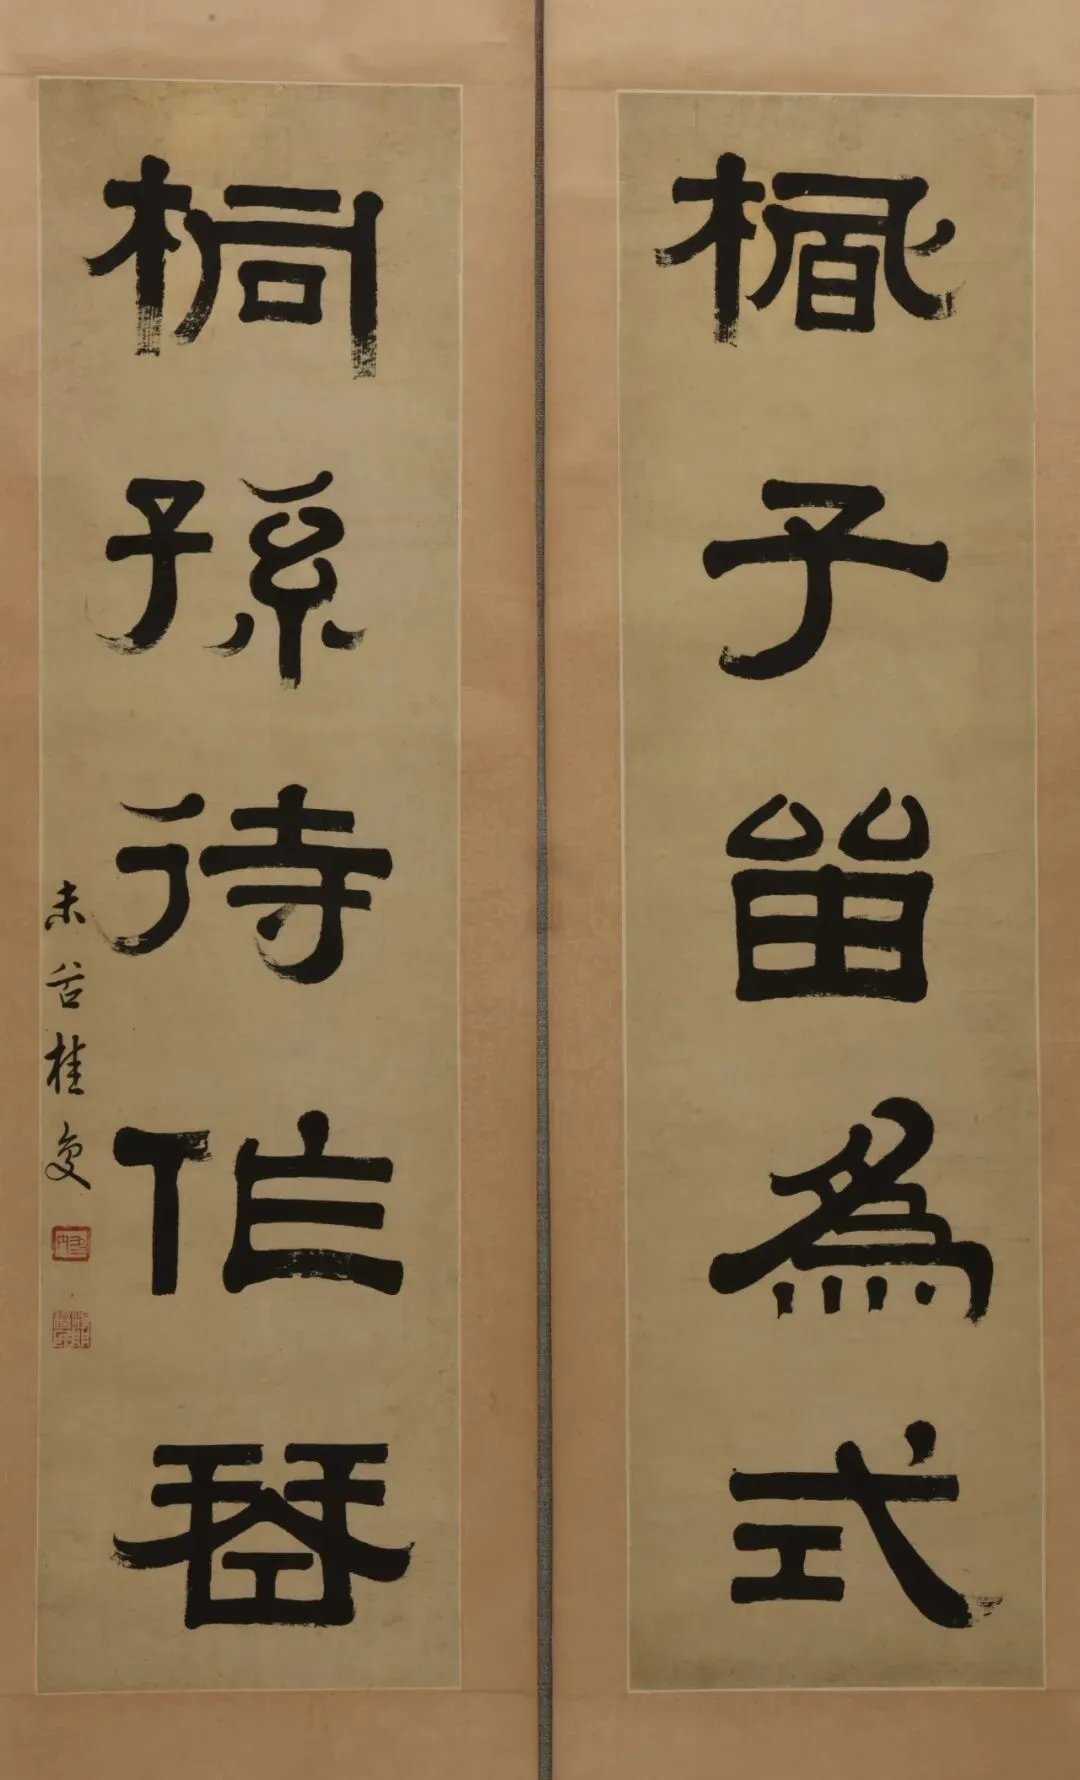 楓子留為式
桐孫待作琴
未谷桂复